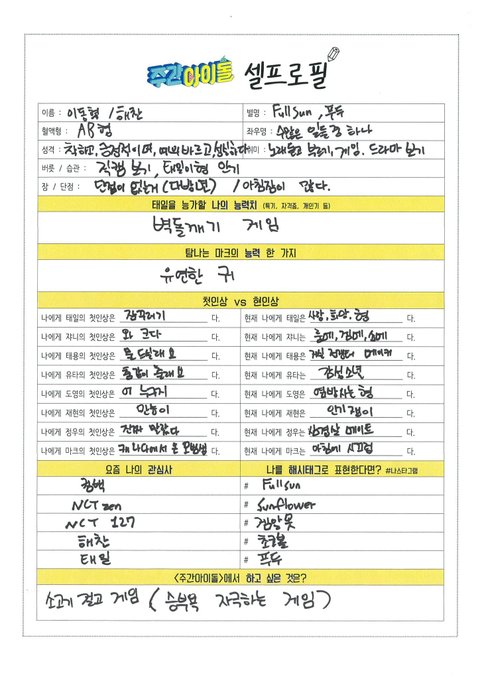 주간아이돌 셀프로필
이름 : 이동혁 / 해찬 별명 : Full sun, 푸두
혈액형 : AB형 좌우명 : 수많은 일들 중 하나
성격 : 착하고, 긍정적이며, 예의바르고 성실하다 취미 : 노래듣고 부르기, 게임, 드라마 보기
버릇 / 습관 : 직캠 보기, 태일이형 안기
장 / 단점 : 단점이 없는게 (다방면) / 아침잠이 많다.
태일을 능가할 나의 능력치 (특기, 자격증, 개인기 등)
벽돌깨기 게임
탐나는 마크의 능력 한 가지
유연한 귀
첫인상 vs 현인상
나에게 태일의 첫인상은 잠꾸러기 다. 현재 나에게 태일은 사랑, 희망, 형 다.
나에게 쟈니의 첫인상은 와 크다 다. 현재 나에게 쟈니는 다.
나에게 태용의 첫인상은 다. 현재 나에게 태용은 메이커 다.
나에게 유타의 첫인상은 다. 현재 나에게 유타는 감성소년 다.
나에게 도영의 첫인상은 어 누구지 다. 현재 나에게 도영은 옆방사는 형 다.
나에게 재현의 첫인상은 만능이 다. 현재 나에게 재현은 인기쟁이 다.
나에게 정우의 첫인상은 진짜 말랐다 다. 현재 나에게 정우는 메이트 다.
나에게 마크의 첫인상은 캐나다에서 온 모범생 다. 현재 나에게 마크는 아침에 시끄럼 다.
요즘 나의 관심사 나를 해시태그로 표현한다면? #나스타그램
컴백 # Full sun
NCT zen # Sunflower
NCT 127 # 잠만못
해찬 # 초코볼
태일 # 푸두
<주간아이돌>에서 하고 싶은 것은?
소고기 걸고 게임 ( 승부욕 자극하는 게임 )